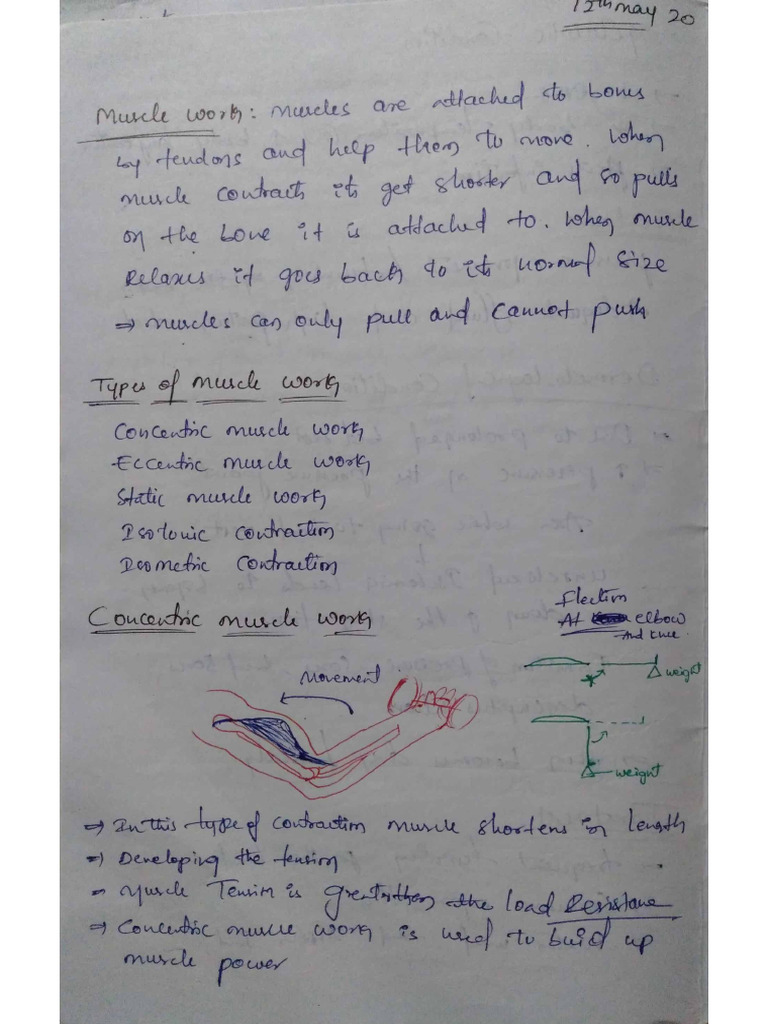 12th may 20
Muscle work: muscles are attached to bones
by tendons and help them to move. When
muscle contracts its get shorter and so pulls
on the bone it is attached to. When muscle
Relaxes it goes back to its normal size
⇒ muscles can only pull and cannot push
Types of muscle work
Concentric muscle work
Eccentric muscle work
Static muscle work
Isotonic contraction
Isometric contraction
Concentric muscle work
Flection
At elbow
And knee
Movement
weight
weight
⇒ In this type of contraction muscle shortens in length
⇒ Developing the tension
⇒ Muscle Tension is greater then the load Resistane
⇒ Concentric muscle work is used to build up
muscle power